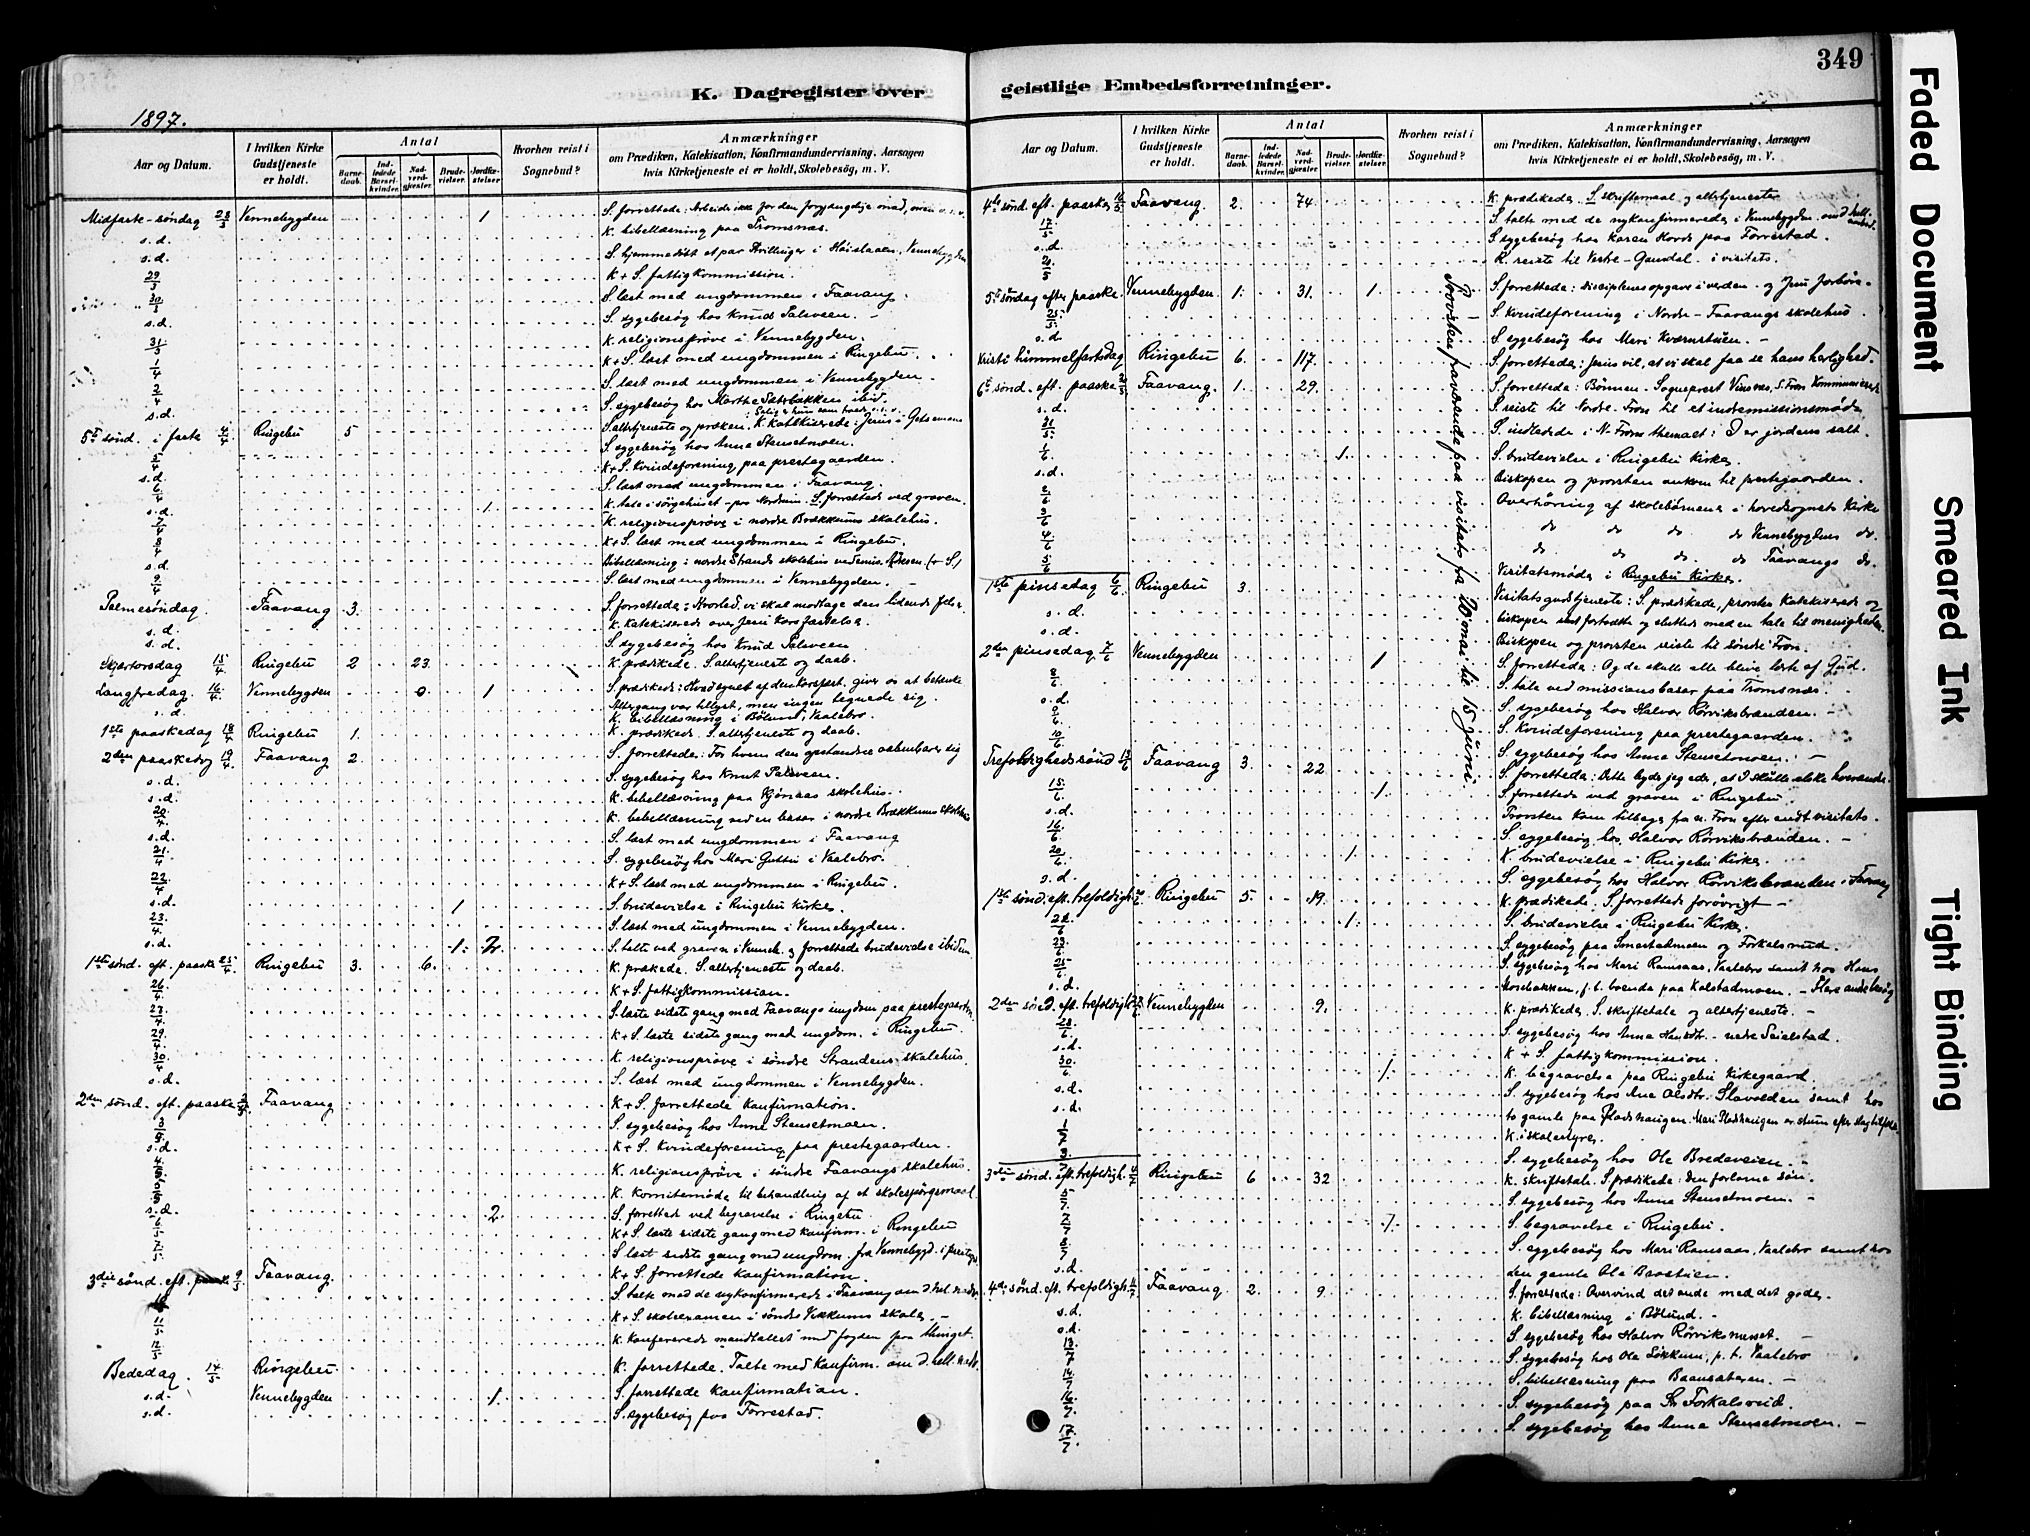 349
K. Dagregister over
geistlige Embedsforretninger.
1897.
Aar og Datum.
I hvilken Kirke Gudstjeneste er holdt.
Antal
Barnedaab.
Indledede Barselkvinder.
Nadverdgjester.
Brudevielser.
Jordfæstelser
Hvorhen reist i Sognebud?
Anmærkninger
om Prædiken, Katekisation, Konfirmandundervisning, Aarsagen
hvis Kirketjeneste ei er holdt, Skolebesög, m. V.
Midfaste-søndag 28/3 Vennebygden 1 S. forrettede: Arbeide ikke for den forgjængelige mad,
s.d. K. bibellæsning paa Tromsnæs.
s.d. S. hjemmedöbt et par tvillinger i Høistaaen, Vennebygden
29/3 K + S. fattigkommission.
30/3 S. læst med ungdommen i Faavang.
s.d. S. sygebesög hos Knud Palsveen.
31/3 K. religionsprøve i Vennebygden.
1/4 K + S. læst med ungdommen i Ringebu.
2/4 S. læst med ungdommen i Vennebygden.
s.d. S. sygebesög hos Marthe Sætrbakken ibid.
5te sønd. i faste 4/4 Ringebu 5 S. altertjeneste og præken. K. katekiserede: Jesus i Getsemane
S. sygebesög hos Anna Stensetmoen.
5/4 K + S. Kvindeforening paa prestegaarden.
s.d. S. læst med ungdommen i Faavang.
6/4 K. tale i sørgehuset S. forrettede ved graven.
s.d. 1. K. religionsprøve i nordre Brækkums skolehus.
7/4 K + S. læst med ungdommen i Ringebu.
8/4
s.d. Bibellæsning i nordre Strands skolehus
9/4 S. læst med ungdommen i Vennebygden.
Palmesöndag. Faavang 3. S. forrettede: Hvorled. vi skal modtage den lidende frelser
s.d. K. katekiserede over Jesu Korsfæstelse.
s.d. S. sygebesög hos Knud Palsveen
Skjærtorsdag 15/4 Ringebu 2 23. K. prædikede. S. altertjeneste og daab.
Langfredag. 16/4 Vennebygden 0. 1 S. prædikede: Hvad synet af den Korsfæst. giver os at betænke
Altergang var tillyst, men ingen tegnede sig.
s.d. K. bibellæsning i Bölund, Vaalebro.
1ste paaskedag 18/4 Ringebu 1. K. prædikede. S. altertjeneste og daab.
2den paaskedag 19/4 Faavang 2. S. forrettede: For hvem den opstandne aabenbarer sig
s.d. S. sygebesög hos Knut Palsveen.
s.d. K. bibellæsning paa Kjönaas skolehus.
20/4 K. bibellæsning ved en basar i nordre Brækkums skolehus
s.d. S. læst med ungdommen i Faavang
21/4 S. sygebesög hos Mari Guttu i Vaalebro.
22/4 K + S. læst med ungdommen i Ringebu.
s.d. 1 S. brudevielse i Ringebu Kirke.
23/4 S. læst med ungdommen i Vennebygden.
s.d. 1. 2. S. talte ved graven i Venneb. og forrettede brudevielse ibidem
1ste sønd. eft. paaske 25/4 Ringebu 3. 6. K. prækede. S. altertjeneste og daab.
26/4 K + S. fattigkommission.
27/4 S. læste sidste gang med Faavangs ungdom paa prestegaarden
29/4 K + S. læste sidste gang med ungdom. i Ringebu
30/4 K. religionsprøve i søndre Strandens skolehus.
s.d. S. læst med ungdommen i Vennebygden.
2den sønd. eft. paaske 2/5 Faavang K + S. forrettede Konfirmation.
3/5 S. sygebesög hos Anna Stensetmoen.
s.d. K + S. Kvindeforening paa prestegaarden.
4/5 K. religionsprøve i søndre Faavangs skolehus.
5/5 K. komitemøde til behandling af et skolespørgsmaal.
s.d. 2. S. forrettede ved begravelse i Ringebu
6/5 K + S. læste sidste gang med Konfirm. i Ringebu
7/5 S. læst sidste gang med ungdom. fra Vennebygd. i prestegd.
3die sønd. eft. paaske 9/5 Faavang. K + S. forrettede Konfirmation.
10 S. talte med de nykonfirmerede i Faavang om d. hel. nadv.
11/5 K + S. skoleexamen i søndre Vekkums skole.
12/5 K. konfererede mandtallet med fogden paa thinget.
Bededag. 14/5 Ringebu K. forrettede. Talte med Konfirm. om d. hell. nadv.
s.d. Vennebygden 1. S. forrettede Konfirmation.
s.d. S. sygebesög paa Forrestad.
Aar og Datum.
I hvilken Kirke Gudstjeneste er holdt.
Antal
Barnedaab.
Indledede Barselkvinder.
Nadverdgjester.
Brudevielser.
Jordfæstelser
Hvorhen reist i Sognebud?
Anmærkninger
om Prædiken, Katekisation, Konfirmandundervisning, Aarsagen
hvis Kirketjeneste ei er holdt, Skolebesög, m. V.
4de sønd. eft. paaske 16/5 Faavang. 2. 74. K. prædikede. S. skriftemaal og altertjeneste
17/5 S. talte med de nykonfirmerede i Vennebygden om d. hell.
s.d. S. sygebesög hos Karen paa Forrestad.
20/5 K. reiste til Vestre-Gausdal i visitats.
5te søndag efter paaske. Vennebygden. 1. 31. 1. S. forrettede: Disciplenes opgave i verden og Jesu forbön.
25/5 S. kvindeforening i Nordre-Faavangs skolehus.
s.d. S. sygebesög hos Mari Kværnstuen.
Kristi himmelfartsdag Ringebu 6. 117. S. forrettede: Jesus vil, at vi skal faa se hans herlighed.
6te sønd. eft. paaske Faavang. 1. 29. S. forrettede: Bønnen. Sogneprest S. Fron
s.d. S. reiste til Nordre-Fron til et indremissionsmøde
31/5 S. indledede i N-Fron themaet: I er jordens salt.
1/6 1. S. brudevielse i Ringebu Kirke.
s.d. Biskopen og provsten ankom til prestegaarden.
2/6 Overhøring af skolebørnene i hovedsognets Kirke
3/6 do do do Vennebygdens do.
4/6 do do do Faavangs do.
5/6 Visitatsmøde i Ringebu Kirke.
1ste pinsedag 6/6 Ringebu 3. Visitatsgudstjeneste: S. prædikede, provsten katekiserede og
s.d. biskopen fortsatte og sluttede med en tale til menigheden
s.d. Biskopen og provsten reiste til søndre Fron.
2den pinsedag 7/6 Vennebygden 1 S. forrettede: Og de skulle alle blive lært af Gud.
8/6 S. tale ved missionsbasar paa Tromsnæs.
s.d. S. sygebesög hos Halvor Rörviksbrænden.
9/6 S. Kvindeforening paa prestegaarden.
10/6 S. sygebesög hos Anna Stensetmoen.
Trefoldighedssønd 13/6 Faavang 3. 22 S. forrettede: Dette byder jeg eder, at I skulle elske hverandre.
15/6 1. S. forrettede ved graven i Ringebu.
s.d. Provsten kom tilbage fra n. Fron efter endt visitats.
16/6 S. sygebesög hos Halvor Rörviksbrænden.
20/6 1. K. brudevielse i Ringebu Kirke.
s.d. S. sygebesög hos Halvor Rörviksbrænden i Faavang
1ste sønd. eft. trefoldigh. Ringebu 5. 19. K. prædikede. S. forrettede forövrigt
1. S. brudevielse i Ringebu Kirke.
23/6 S. sygebesög paa Smestadmoen og Forkalsrud.
25/6 S. sygebesög hos Mari Ramsaas, Vaalebro samt hos Hans
s.d. p.t. boende paa Kolstadmoen. – Flere andre besög
2den sønd. eft. trefoldigh. Vennebygden 9. K. prædikede. S. skriftetale og altertjeneste.
28/6 S. sygebesög hos Anna Hansdtr. – nedre Seielstad.
s.d. K + S. fattigkommission.
30/6 1. K. begravelse paa Ringebu Kirkegaard.
s.d. S. sygebesög hos Ane Olsdtr. Slaveolden samt hos
s.d. to gamle paa Pladshaugen. Mari Pladshaugen er stum efter slagtilfælde.
K. i skolestyre.
S. sygebesög hos Ole Bredeveien.
3die sønd. eft. trefoldigh. 4/7 Ringebu 6 32 K. skriftetale. S. prædikede: Den forlorne søn.
5/7 S. sygebesög hos Anna Stensetmoen.
7/7 1. S. begravelse i Ringebu.
8/7 S. sygebesög hos Mari Ramsaas, Vaalebro samt hos
s.d. den gamle Ole
4de sønd. eft. trefoldigh. 11/7 Faavang 2. 9. S. forrettede: Overvind det onde med det gode.
s.d. K. bibellæsning i Bölund.
s.d. S. sygebesög hos Halvor Rörviksnesset.
13/7 S. sygebesög hos Ole Løkken, p.t. Vaalebro
14/7 S. bibellæsning paa
16/7. S. sygebesög paa Forkalsrud.
17/7 S. sygebesög hos Anna Stensetmoen.
Provsten fraværende paa visitats fra 20 mai til 15 juni.
Faded Document
Smeared Ink
Tight Binding